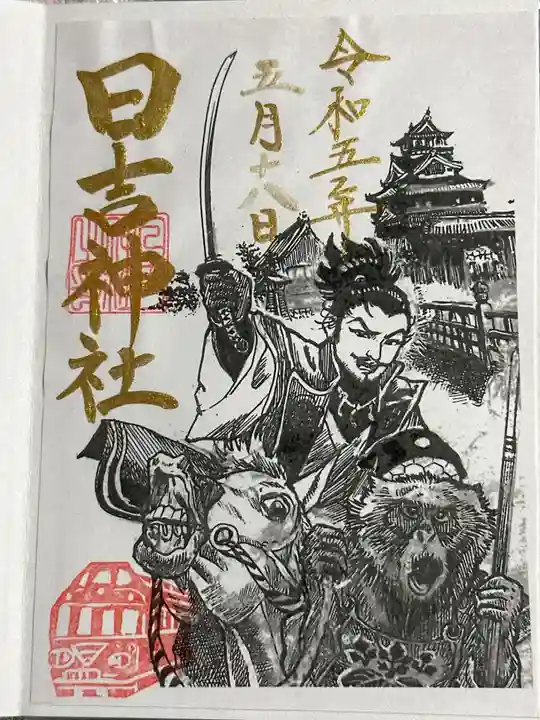 令和五年
五月十八日
日吉神社